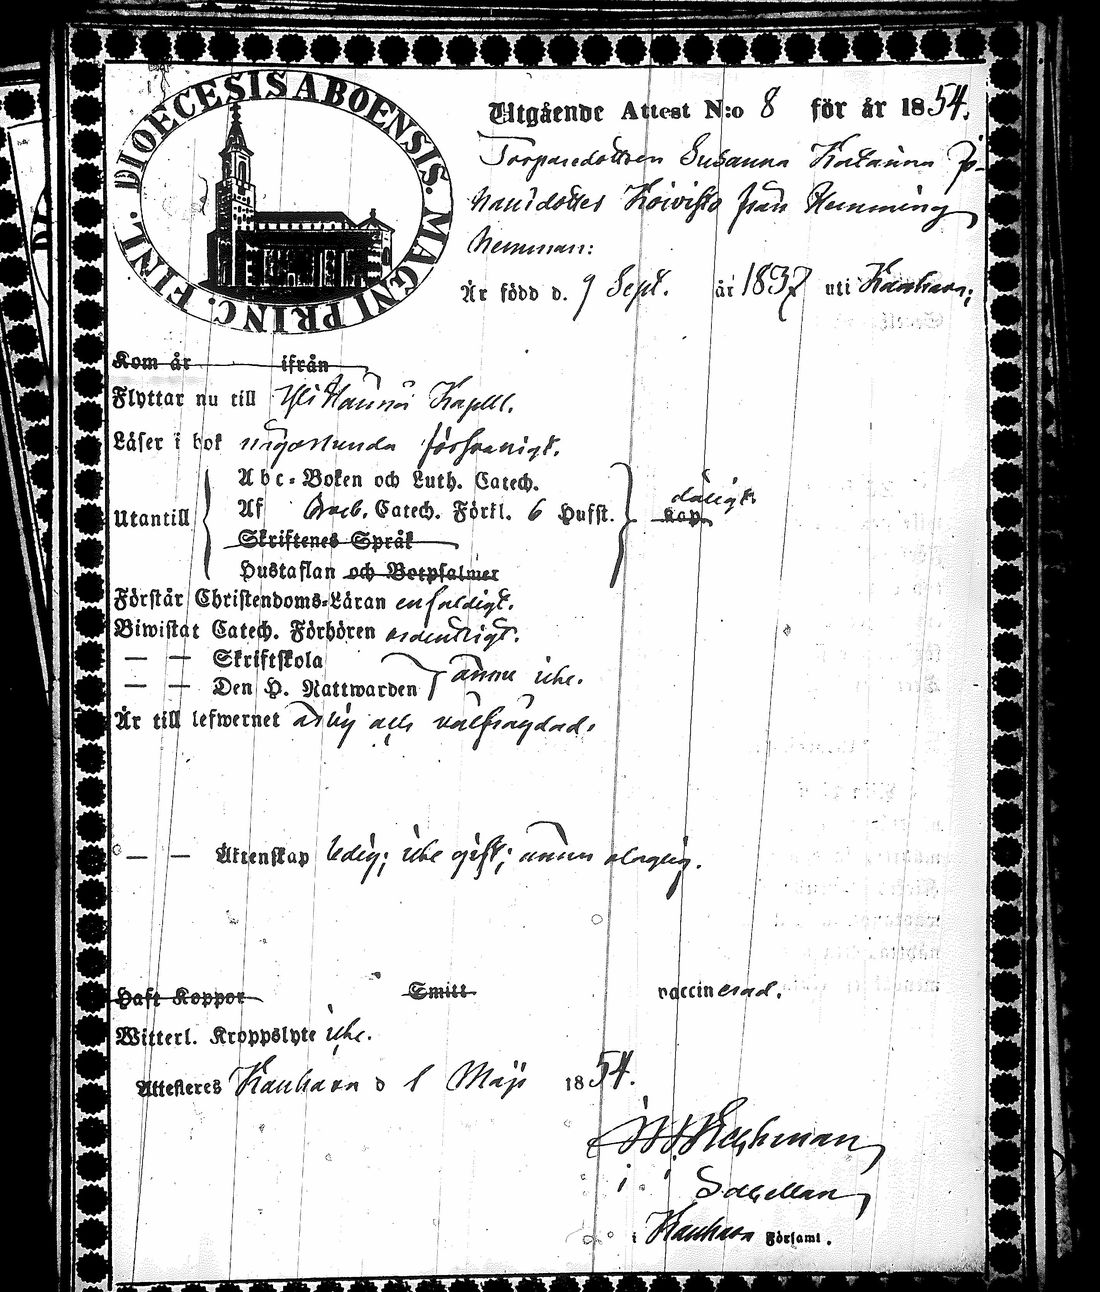 DIOECESIS ABOENSIS. MAGNI PRINC. FINL.
Utgående Attest N:o 8 för år 1854.
Torparedottren Susanna Katarina Jo-
hansdotter Koivisto från Hemming
hemman:
Är född d. 9 Sept. år 1837 uti Kauhava;
Kom år ifrån
Flyttar nu till Ylihärmä Kapell.
Läser i bok någorlunda försvarligt.
Abc-Boken och Luth. Catech.
Utantill Af Sveb. Catech. Förkl. 6 Hufst. dåligt
kap.
Skriftenes Språk
Hustaflan och Botpsalmer
Förstår Christendoms-Läran enfaldigt.
Biwistat Catech. Förhören ordentligt.
— — Skriftskola
— — Den H. Nattwarden ännu icke.
Är till lefwernet ärlig och välfrägdad.
— — Äktenskap ledig; icke gift; ännu olaglig.
Haft Koppor Smitt vaccinerad.
Witterl. Kroppslyte icke.
Attesteres Kauhava d 1 Maji 1854.
Sacellan
i Kauhava Församl.